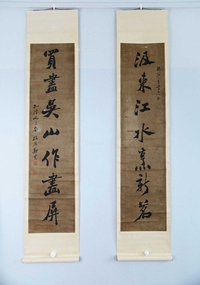 汲來江水烹新茗
買盡吳山作畫屏